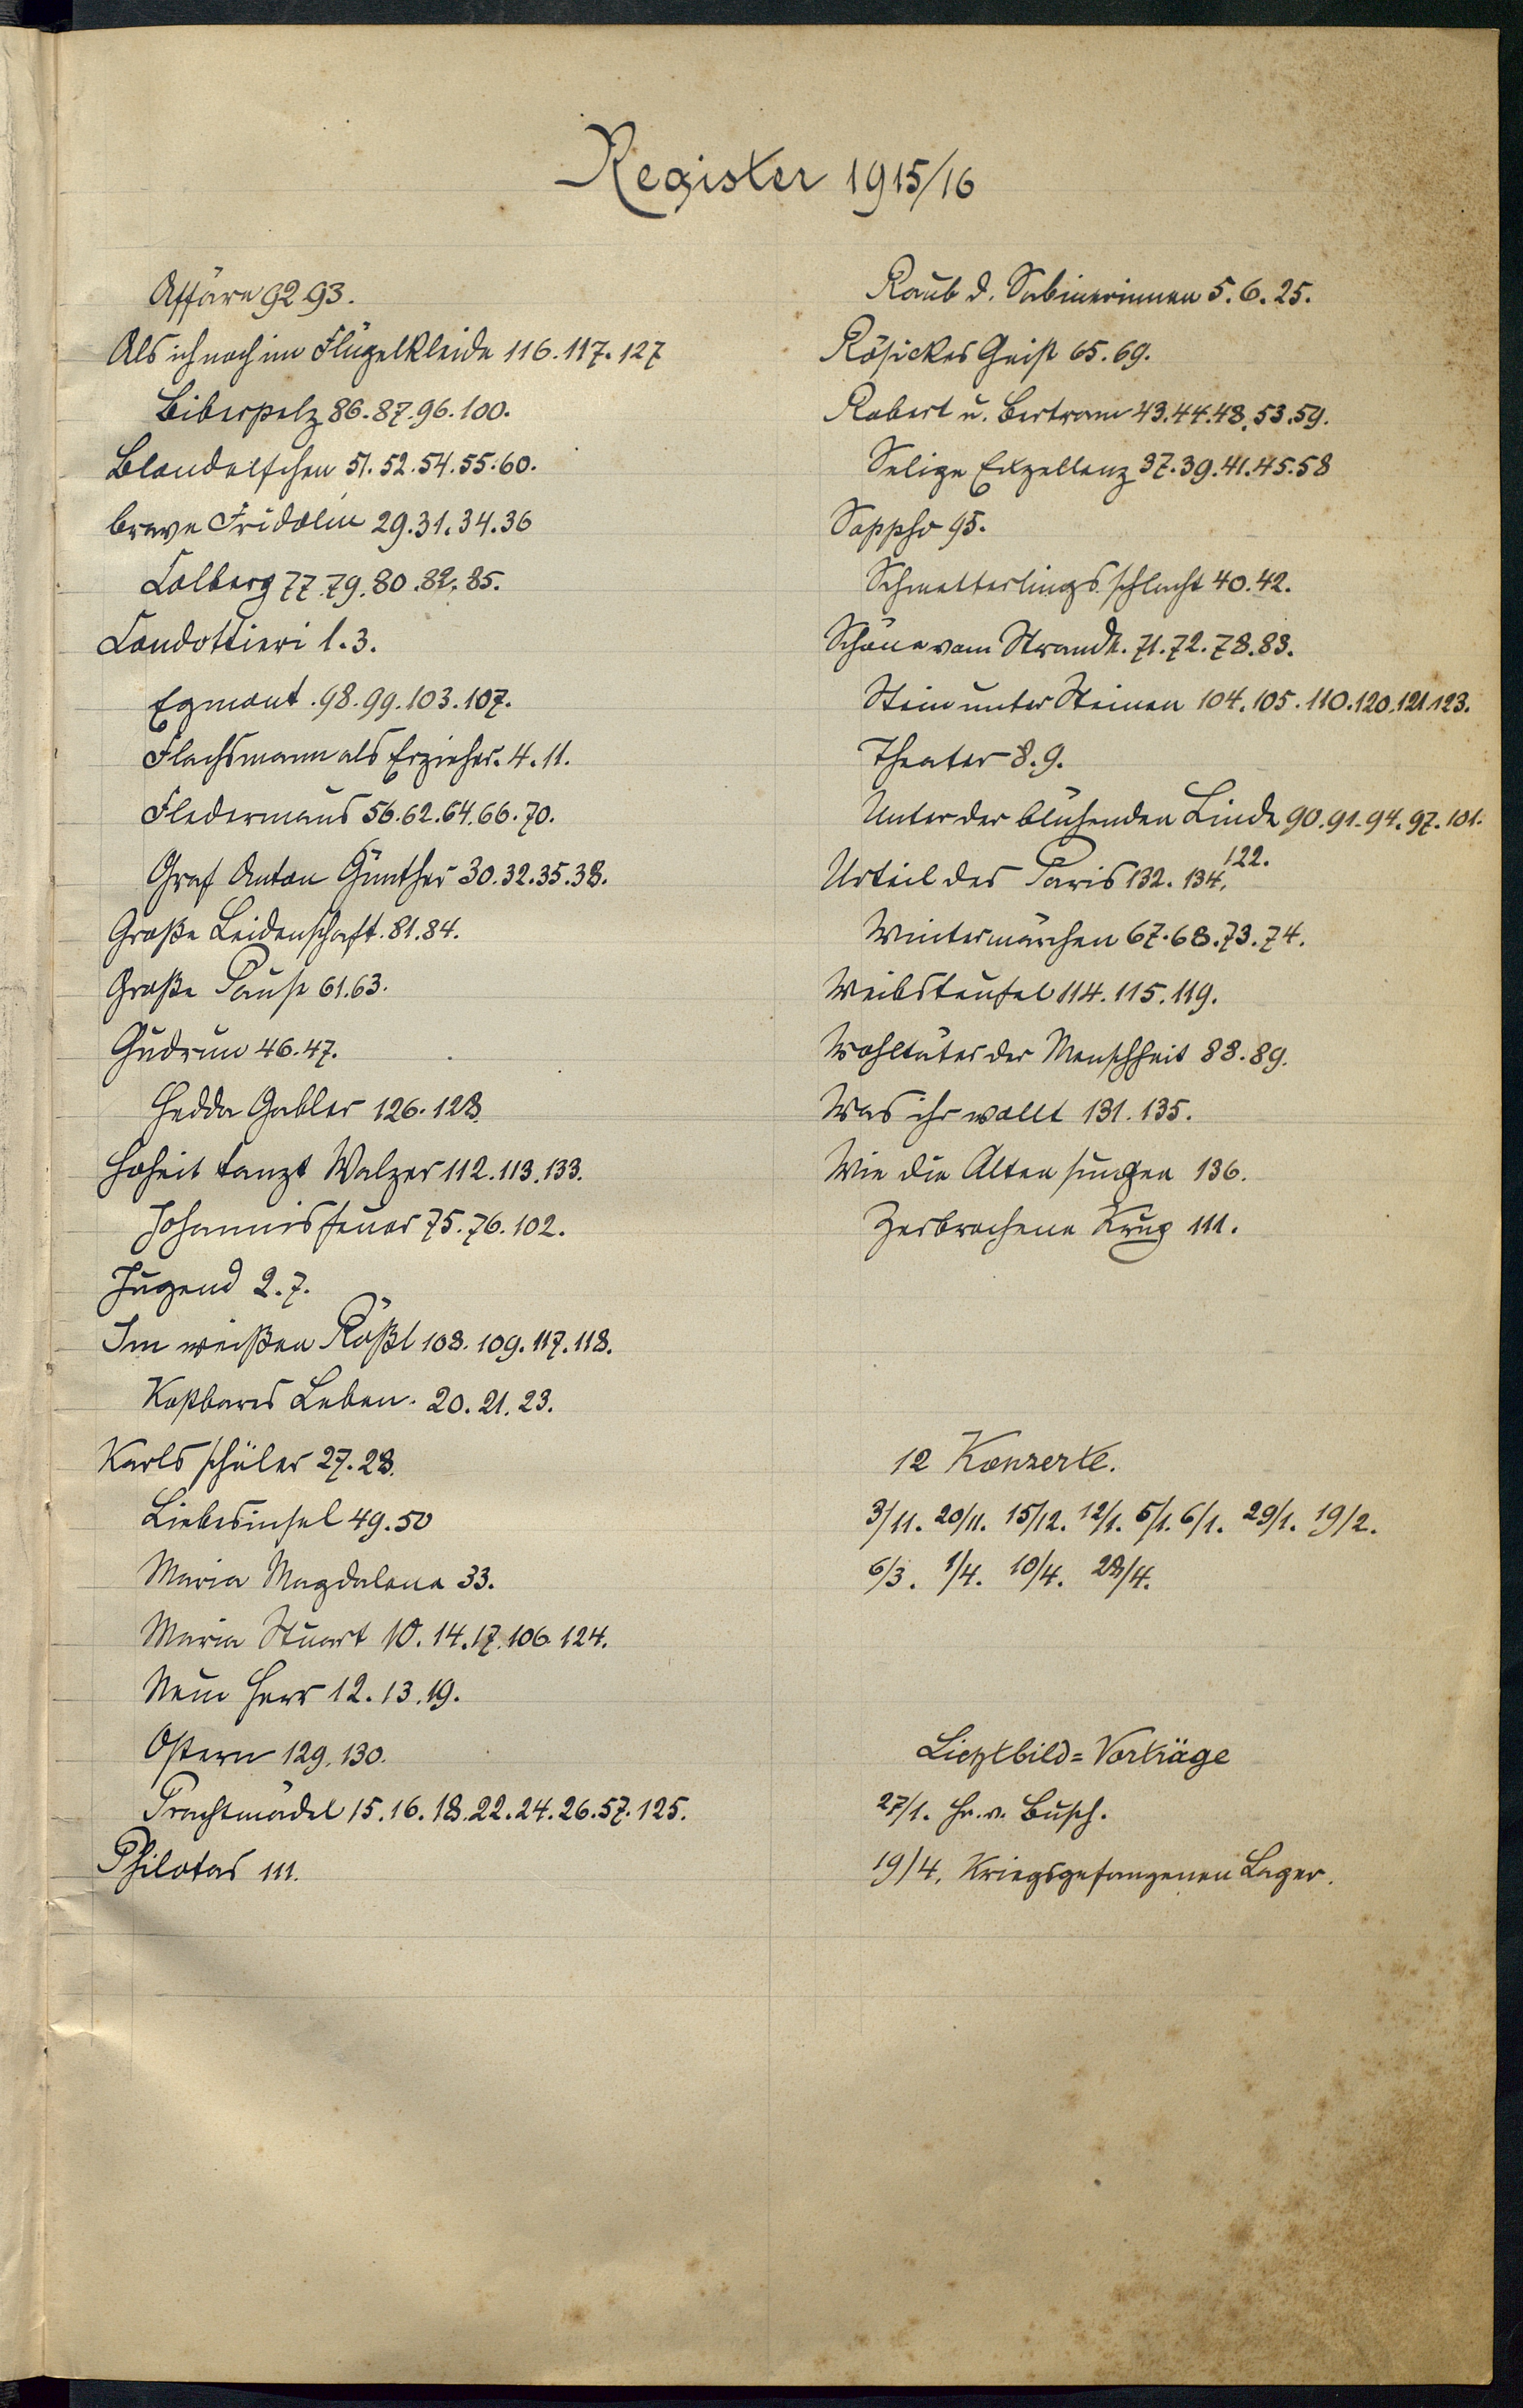 Register 1915/16
Affäre 92.93.
Als ich noch im Flügelkleide 116. 117. 127
Biberpelz 86. 87. 96. 100.
Blondelfchen 51. 52. 54. 55. 60.
brave Fridolin 29. 31. 34. 36
Colberg 77. 79. 80. 82. 85.
Condottieri 1. 3.
Egmont. 98. 99. 103. 107.
Flachsmann als Erzieher. 4. 11.
Fledermaus 56. 62. 64. 66. 70.
Graf Anton Günther 30. 32. 35. 38.
Große Leidenschaft. 81. 84.
Große Pause 61. 63.
Gudrun 46. 47.
Hedda Gabler 126. 128.
Hoheit tanzt Walzer 112. 113. 133.
Johannisfeuer 75. 76. 102.
Jugend 2. 7.
Im weißen Rößl 108. 109. 117. 118.
Kostbares Leben. 20. 21. 23.
Karlsschüler 27. 28.
Liebesinsel 49. 50
Maria Magdalena 33.
Maria Stuart 10. 14. 17. 106. 124.
Neue Herr 12. 13. 19.
Ostern 129. 130.
Prachtmädel 15. 16. 18. 22. 24. 26. 57. 125.
Philotas 111.
Raub d. Sabinerinnen 5. 6. 25.
Rösickes Geist 65. 69.
Robert u. Bertram 43. 44. 48. 53. 59.
Selige Exzellenz 37. 39. 41. 45. 58
Sappho 95.
Schmetterlingsschlacht 40. 42.
Schöne vom Strande. 71. 72. 78. 83.
Stein unter Steinen 104. 105. 110. 120. 121. 123.
Theater 8. 9.
Unter der blühenden Linde 90. 91. 94. 97. 101.
122.
Urteil des Paris 132. 134.
Wintermärchen 67. 68. 73. 74.
Weibsteufel 114. 115. 119.
Wohltäter der Menschheit 88. 89.
Was ihr wollt 131. 135.
Wie die Alten sungen 136.
Zerbrochene Krug 111.
12 Konzerte.
3/11. 20/11. 15/12. 12/1. 5/1. 6/1. 29/1. 19/2.
6/3. 1/4. 10/4. 28/4.
Lichtbild=Vorträge
27/1. Hr. v. Busch.
19/4. Kriegsgefangenen Lager.